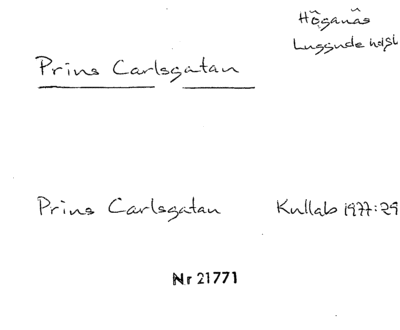 Höganäs
Luggude hd Sk
Prins Carlsgatan
Prins Carlsgatan Kullab 1977:29
Nr 21771